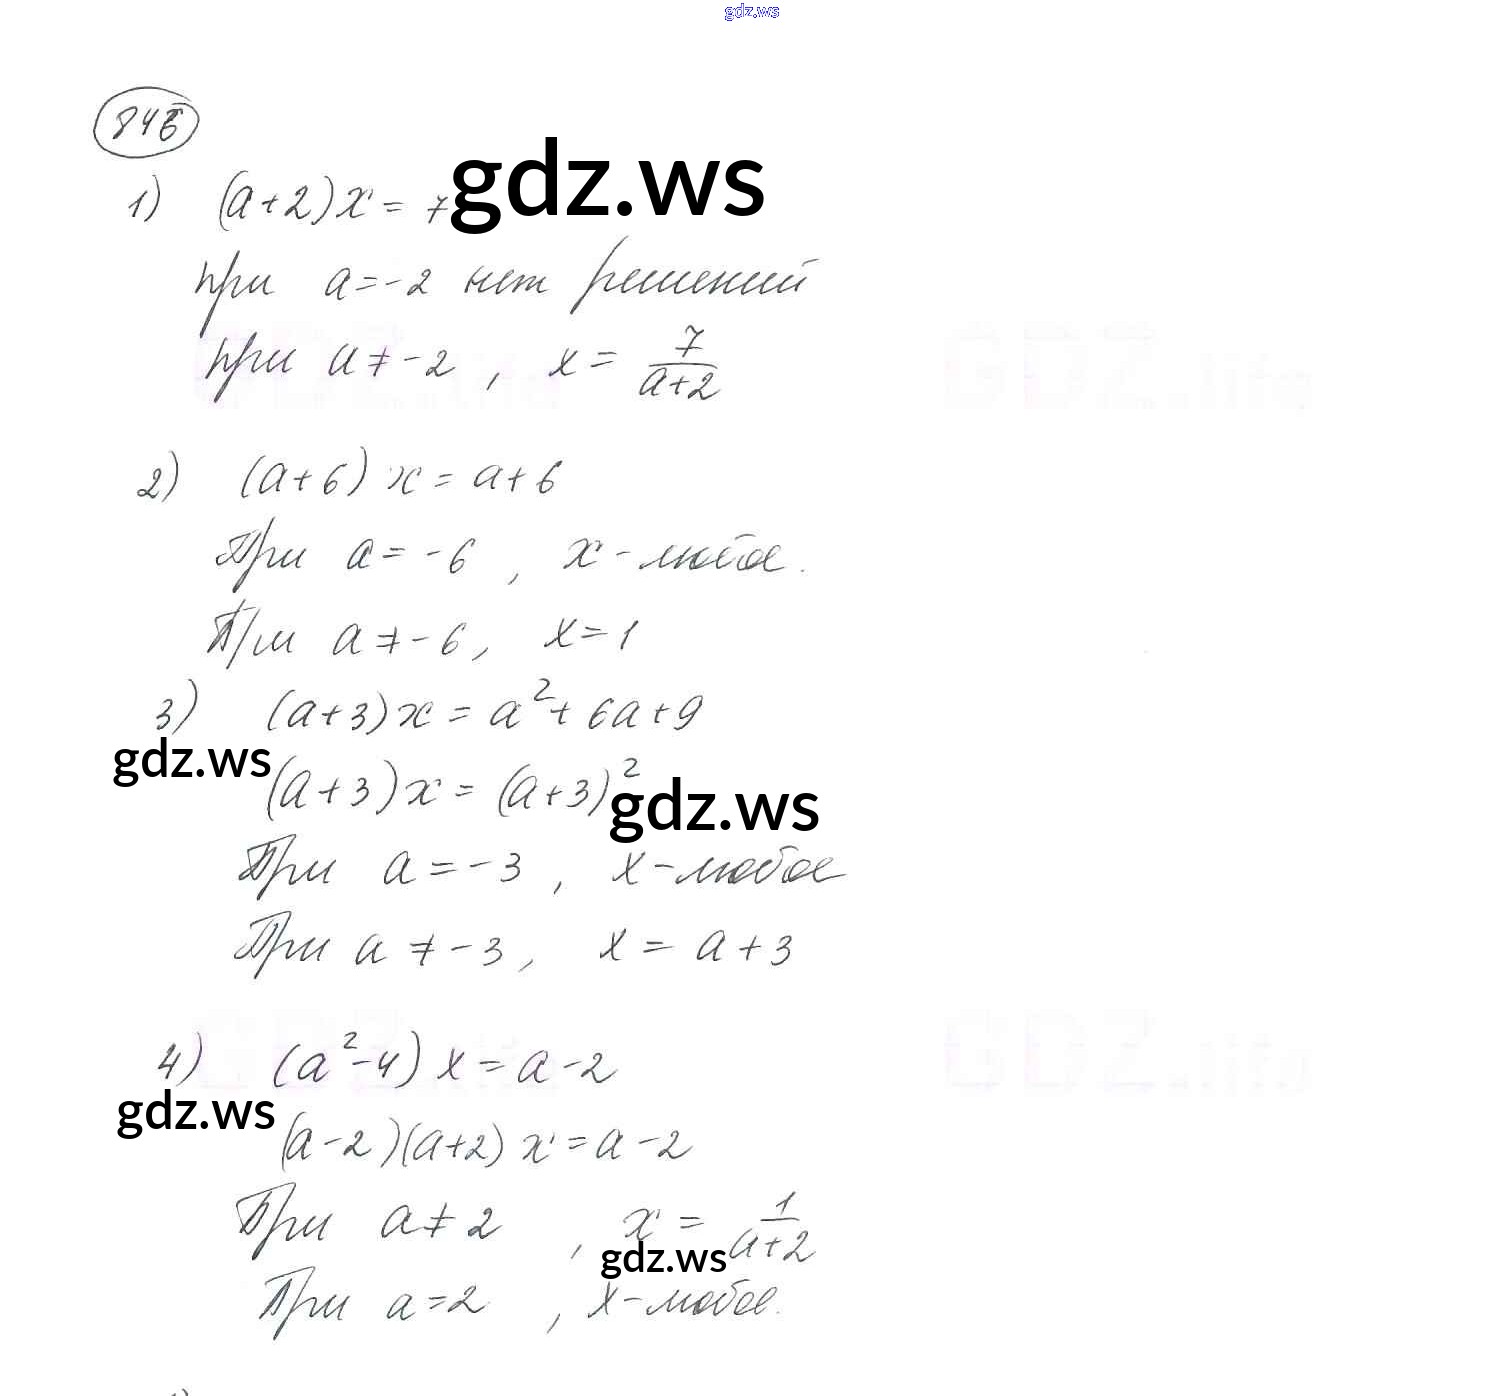 gdz.ws
846
1) (a+2)x = 7
gdz.ws
при a=-2 нет решений
при a≠-2, x = 7/(a+2)
GDZ.life GDZ.life
2) (a+6)x = a+6
При a=-6, x-любое.
При a≠-6, x=1
3) (a+3)x = a²+6a+9
gdz.ws
(a+3)x = (a+3)²
gdz.ws
При a=-3, x-любое
При a≠-3, x = a+3
4) (a²-4)x = a-2
GDZ.life GDZ.life
gdz.ws
(a-2)(a+2)x = a-2
При a≠2, x = 1/(a+2)
gdz.ws
При a=2, x-любое.